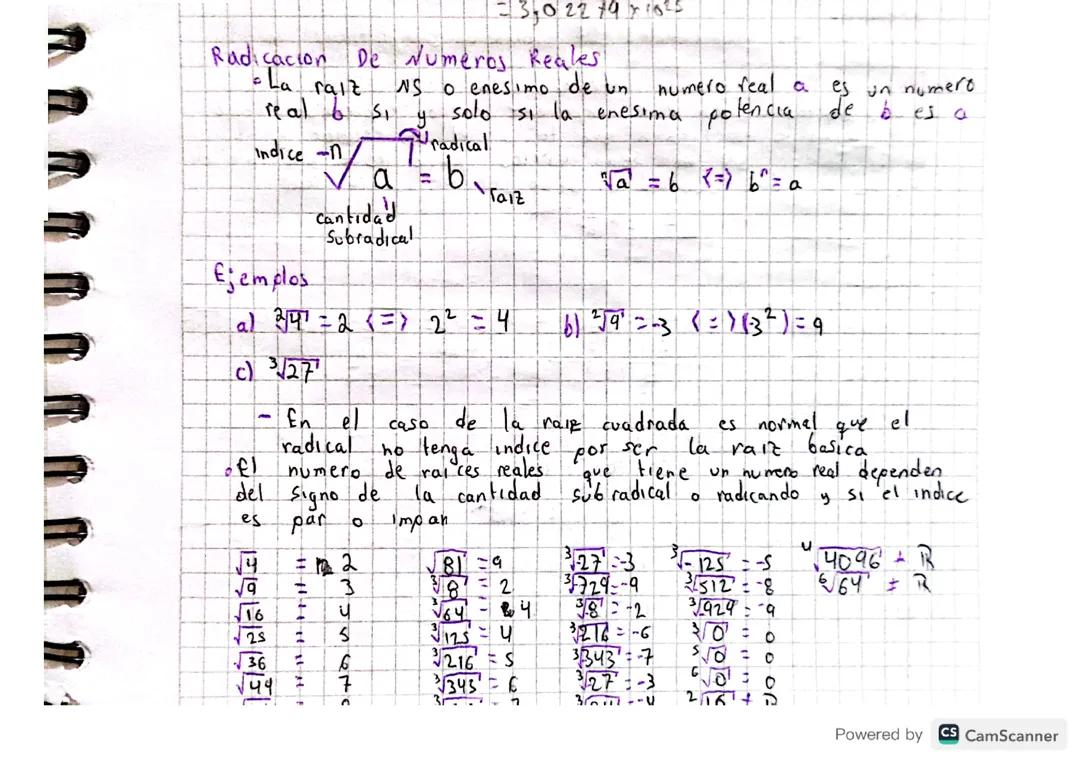 = 3,02279 x 10²⁵
Radicacion De Numeros Reales
• La raiz NS o enesimo de un numero real a es un numero
real b si y solo si la enesima potencia de b es a
indice - n √a = b radical
raiz
cantidad
Subradical
ⁿ√a = b <=> bⁿ = a
Ejemplos
a) ²√4 = 2 <=> 2² = 4 b) ²√9 = -3 <=> (-3²) = 9
c) ³√27
- En el caso de la raiz cuadrada es normal que el
radical no tenga indice por ser la raiz basica
• El numero de raices reales que tiene un numero real dependen
del signo de la cantidad subradical o radicando y si el indice
es par o impar
√4 = 2 √81 = 9 ³√-27 = -3 ³√-125 = -5 ⁴√4096 ± R
√9 = 3 ³√8 = 2 ³√-729 = -9 ³√-512 = -8 ⁶√64 ± R
√16 = 4 ³√64 = 4 ³√-8 = -2 ³√929 = -9
√25 = 5 ³√125 = 4 ³√216 = -6 ³√0 = 0
√36 = 6 ³√216 = 5 ³√343 = -7 ⁵√0 = 0
√49 = 7 ³√343 = 6 ³√27 = -3 ⁶√0 = 0
Powered by CS CamScanner